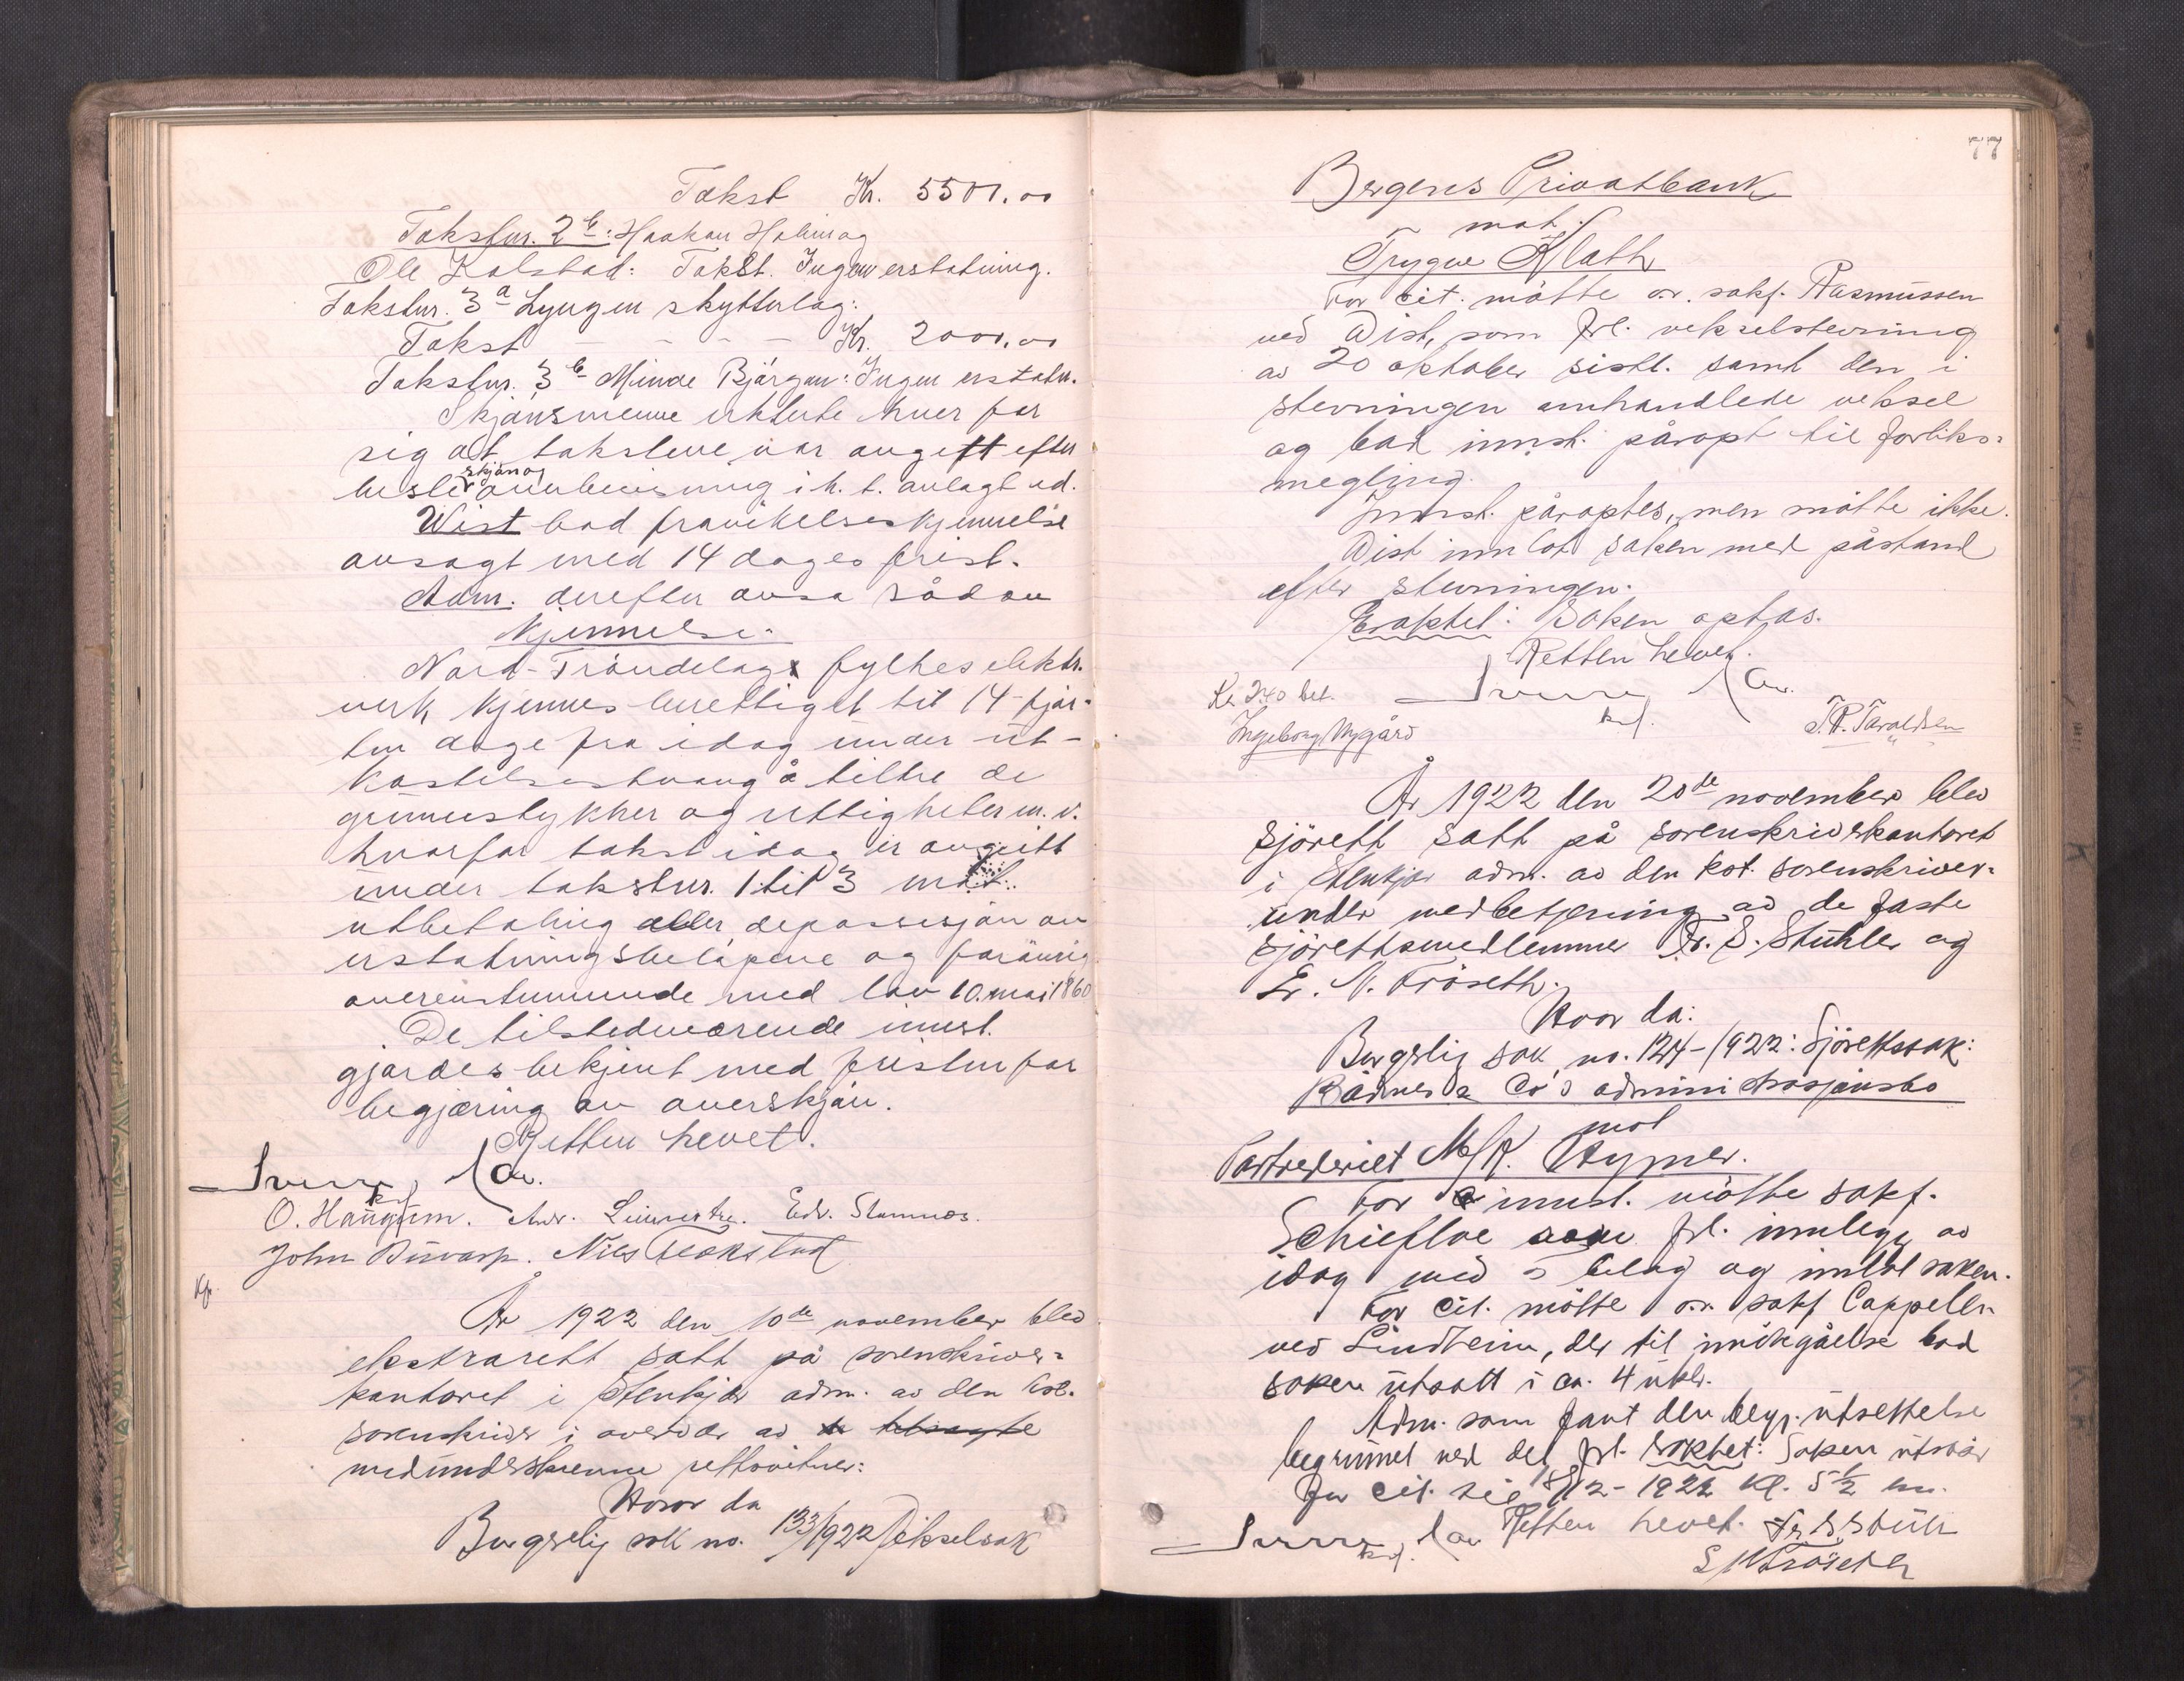 Takst Kr. 5500.00
Takstnr. 2b: Haakon Holm og
Ole Kolstad: Takst. Ingen erstatning.
Takstnr. 3a Lyngen skytterlag:
Takst - - - - Kr. 2000.00
Takstnr. 3b Minde Bjørgan: Ingen erstatn.
Skjønsmenne erklærte hver for
sig at takstene var avgitt efter
beste skjøn og overbevisning i h. t. avlagt ed.
Wist bad fravikelseskjennelse
avsagt med 14 dages frist.
Adm. derefter avsa sådan
kjennelse:
Nord-Trøndelag fylkes elektr.
verk kjennes berettiget til 14-fjor-
ten dage fra idag under ut-
kastelsestvang å tiltre de
grunnstykker og rettigheter m. v.
hvorfor takst idag er avgitt
under takstnr. 1 til 3 mot
utbetaling eller deposisjon av
erstatningsbeløpene og forøvrig
overenstemmende med lov 10. mai 1860
De tilstedeværende innst.
gjordes bekjent med fristen for
begjæring av overskjøn.
Retten hevet.
O. Haugum. Edv. Stamnes.
John Nils
Kfr.
År 1922 den 10de november blev
ekstrarett satt på sorenskriver-
kontoret i Stenkjær adm. av den kst.
sorenskriver i overvær av
medunderskrevne rettsvitner:
Hvor da
Borgerlig sak no. 133/1922 Vekselsak
77
Bergens Privatbank
mot
Trygve Klath
For cit. møtte o.r. sakf. Rasmussen
ved Wist, som frl. vekselstevning
av 20 oktober sistl. samt den i
stevningen omhandlede veksel
og bad innst. påropt til forliks-
megling.
Innst. påroptes, men møtte ikke.
Wist inlot saken med påstand
efter stevningen.
Eraktet: Saken optas.
Retten hevet.
Kr 2.40 bet.
Ingeborg Nygård
T. R. Taraldsen
År 1922 den 20de november blev
sjørett satt på sorenskriverkontoret
i Stenkjær adm. av den kst. sorenskriver
under medbetjening av de faste
sjørettsmedlemmer Fr. S. Stühler og
E. N. Frøseth.
Hvor da:
Borgerlig sak no. 124-1922: Sjørettssak:
& Co's administrasjonsbo
mot
Partrederiet M/K. Hymer.
For innst. møtte sakf.
Schiefloe som frl. innlegg av
idag med 5 bilag og innlot saken.
For cit. møtte o.r. sakf Cappelen
ved Lindheim, der til imøtegåelse bad
saken utsatt i ca. 4 uker.
Adm. som fant den begj. utsettelse
begrunnet ved det frl. eraktet: Saken utstår
for cit. til 18/12-1922 kl. 5 1/2 em.
Retten hevet. Fr. S. Stühler
E N Frøseth